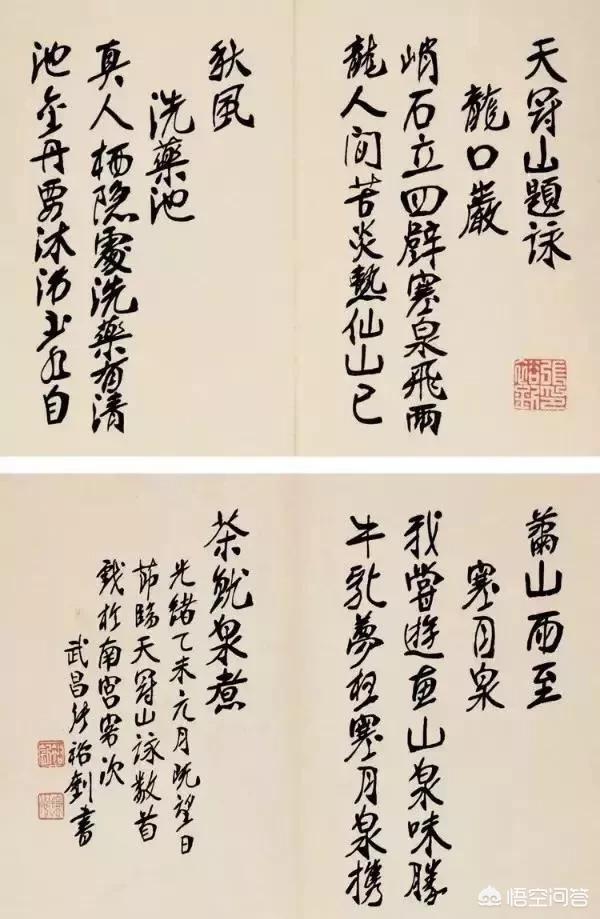 天冠山題詠
龍口巖
峭石立四壁寒泉飛兩
龍人間苦炎熱仙山已
秋風
洗藥池
真人栖隱處洗藥有清
池金丹要沐浴玉水自
蕭山雨至
寒月泉
我嘗遊惠山泉味勝
牛乳夢想寒月泉攜
茶就泉煮
光緒乙未元月既望日
節臨天冠山詠數首
於南宮客次
武昌張裕釗書
悟空问答